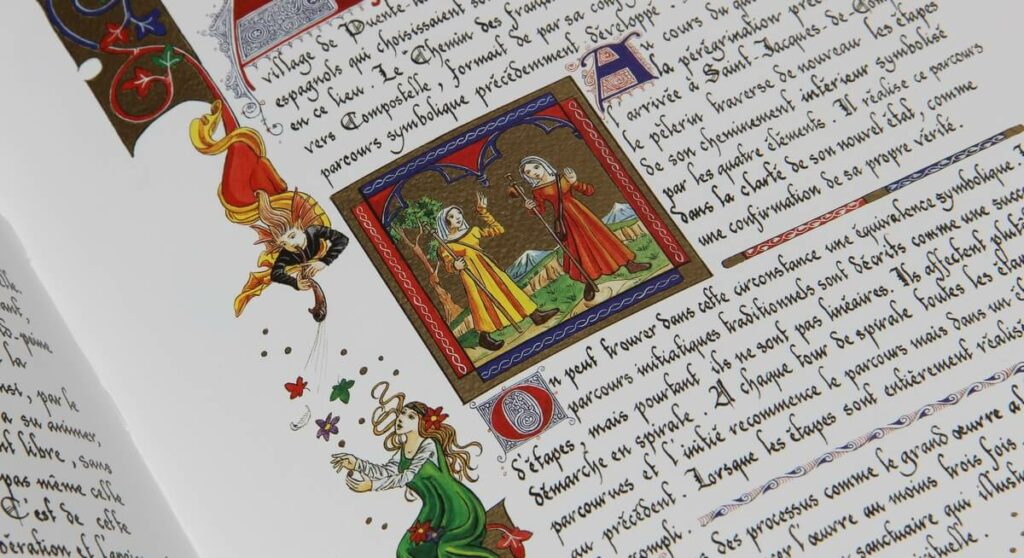 village de Puente-
espagnols qui choisissaient
en ce lieu. Le Chemin des
vers Compostelle, formait de par sa
parcours symbolique précédemment développé.
Au cours du
la pérégrination
arrivée à Saint-Jacques-de-Comp
le pèlerin traverse de nouveau les étapes
de son cheminement intérieur symbolisé
par les quatre éléments. Il réalise ce parcours
dans la clarté de son nouvel état, comme
une confirmation de sa propre vérité.
On peut trouver dans cette circonstance une équivalence symbolique.
parcours initiatiques traditionnels sont décrits comme une succ
d'étapes, mais pourtant ils ne sont pas linéaires. Ils affectent plutôt
démarche en spirale. A chaque tour de spirale toutes les
parcourues et l'initié recommence le parcours mais dans un
au précédent. Lorsque les étapes sont entièrement
accompli.
des processus comme le grand œuvre al
l'œuvre au moins trois fois
sanctuaire qui
la
par le
a su animer,
libre, sans
pas même celle
C'est de cette
et